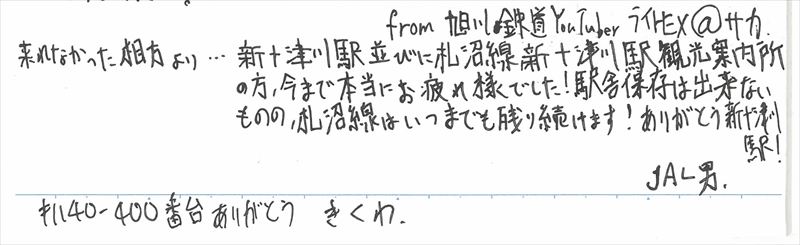 from 旭川の鉄道YouTuber ライトEX@サカ
来れなかった相方より… 新十津川駅並びに札沼線新十津川駅観光案内所
の方,今まで本当にお疲れ様でした!駅舎保存は出来ない
ものの,札沼線はいつまでも残り続けます!ありがとう新十津川
駅!
JAL男.
キハ40-400番台ありがとう きくわ.